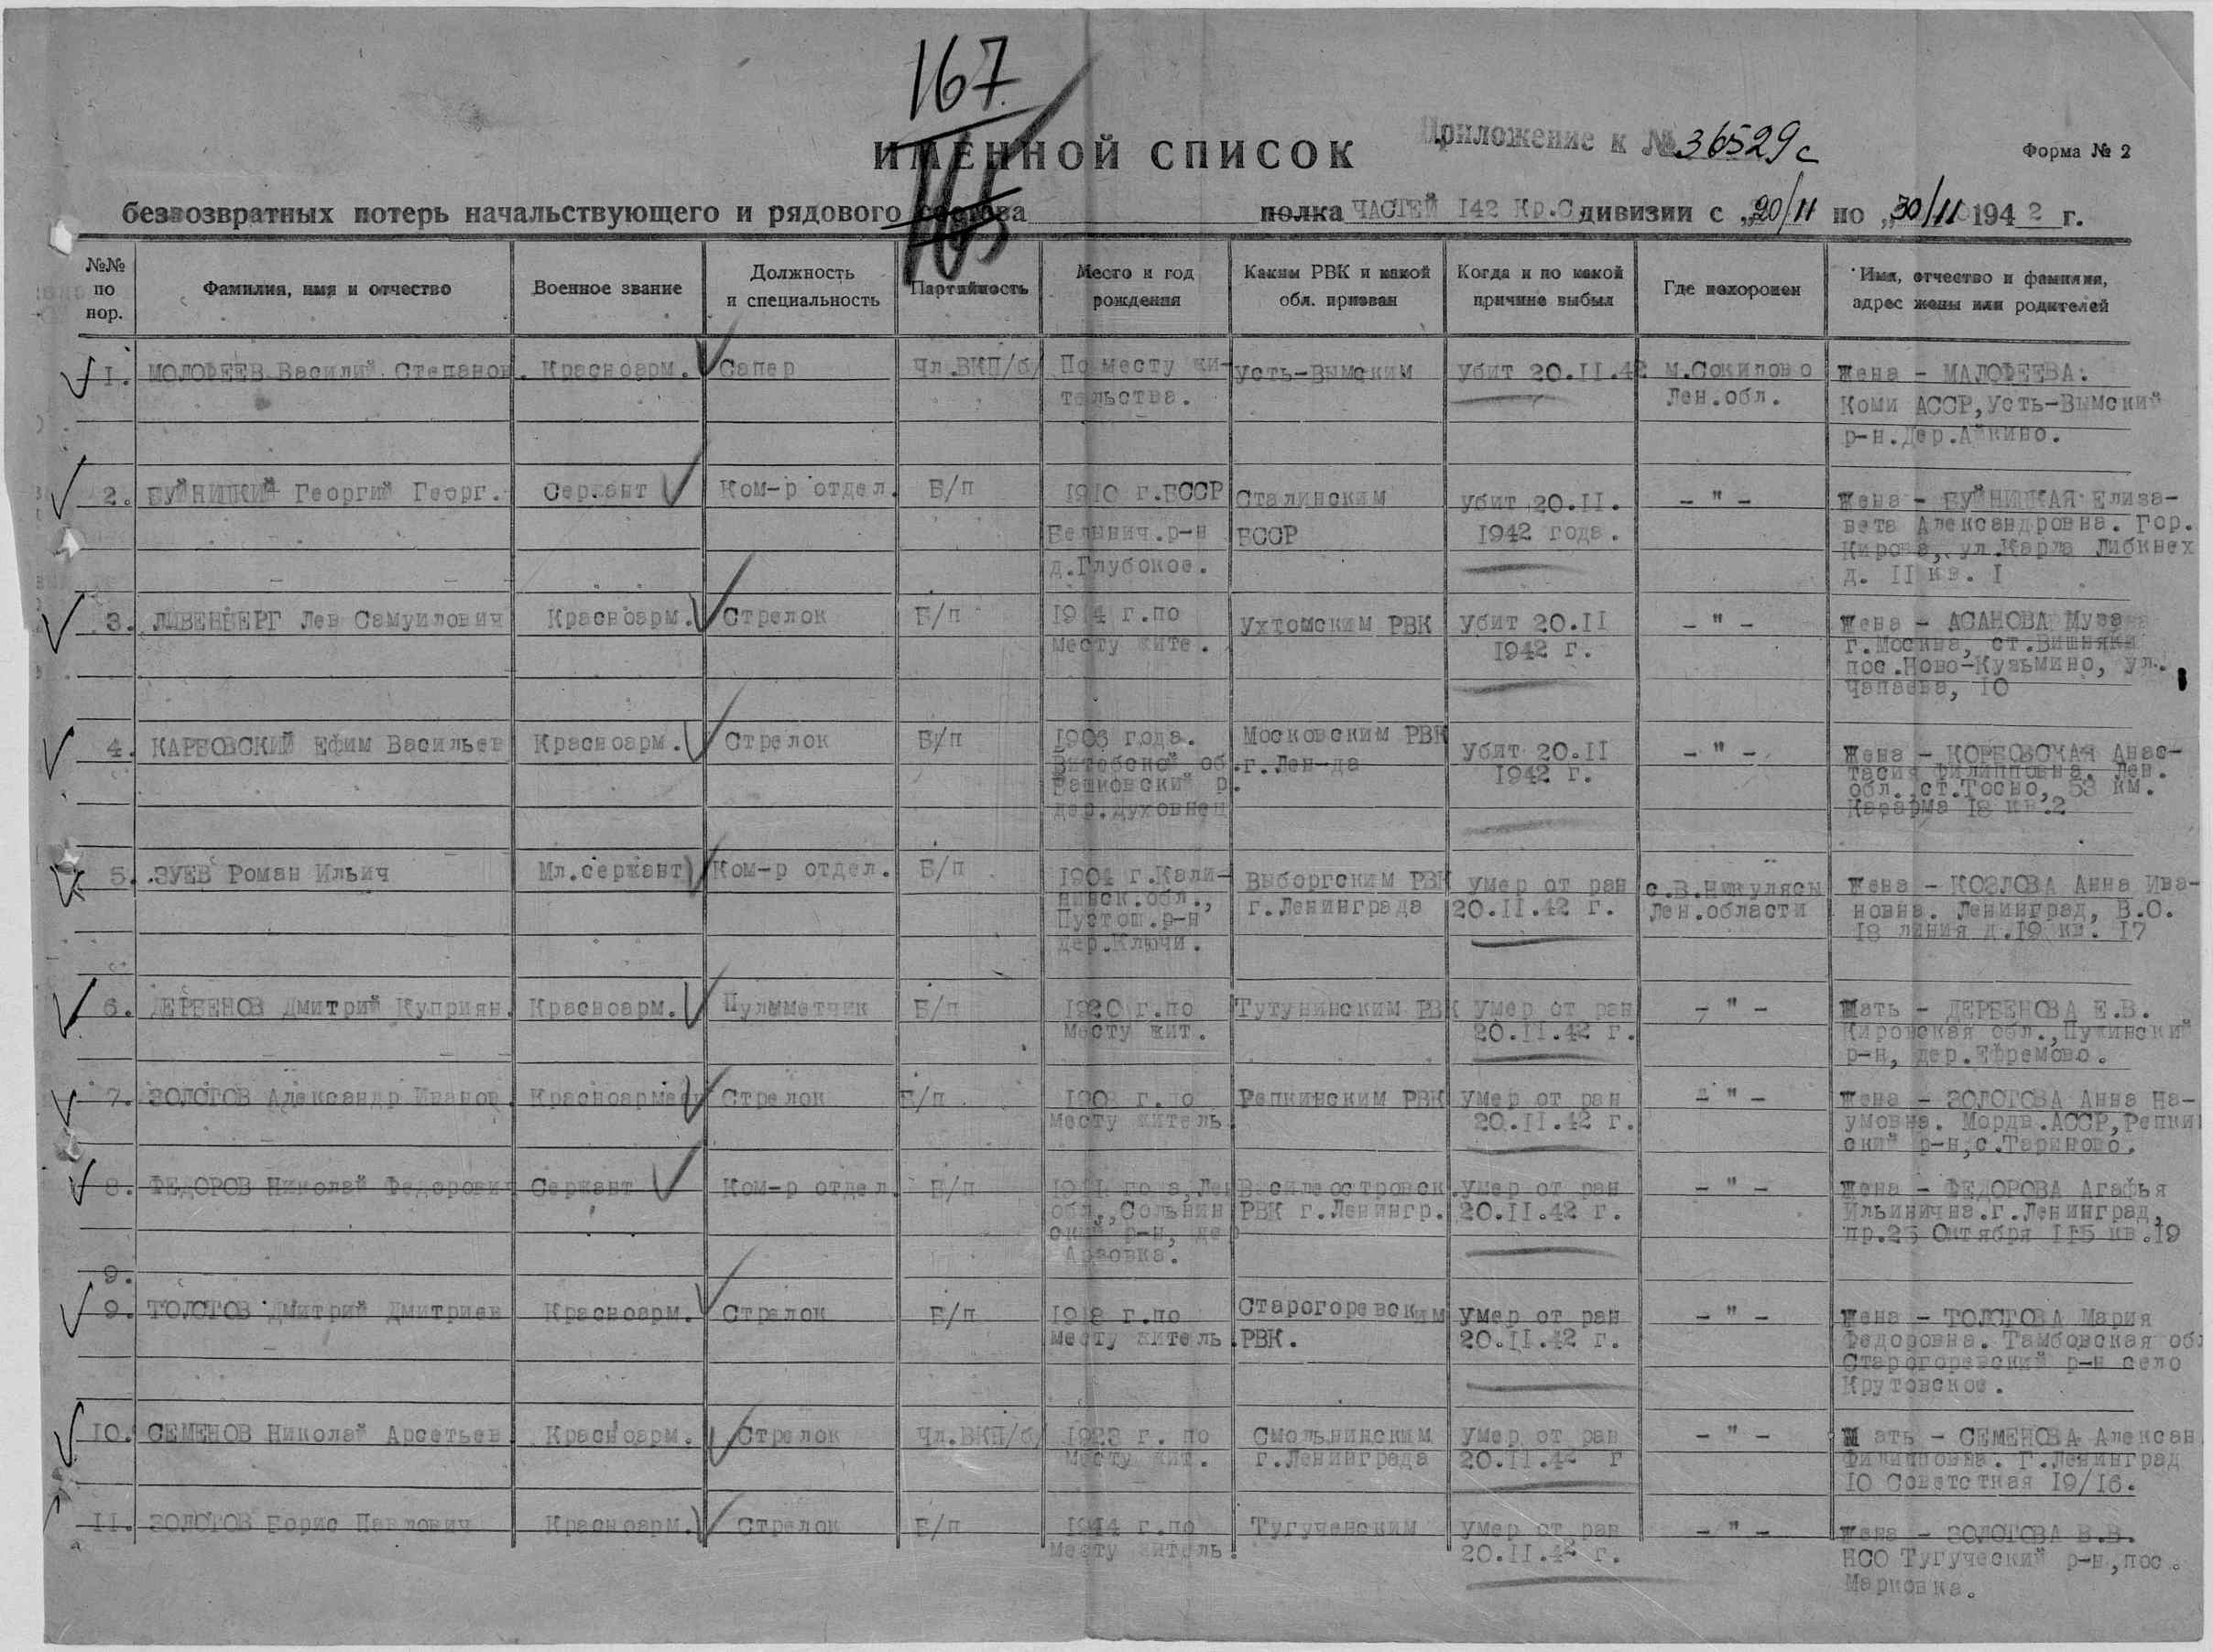 167
165
ИМЕННОЙ СПИСОК
Приложение к № 36529с
Форма № 2
безвозвратных потерь начальствующего и рядового состава полка ЧАСТЕЙ 142 Кр.С дивизии с „20/11 по „30/11 1942 г.
№№ по нор.
Фамилия, имя и отчество
Военное звание
Должность и специальность
Партийность
Место и год рождения
Каким РВК и какой обл. призван
Когда и по какой причине выбыл
Где похоронен
Имя, отчество и фамилия, адрес жены или родителей
1. МОЛОФЕЕВ Василий Степанов. Красноарм. Сапер Чл.ВКП/б/ По месту жи- Усть-Вымским Убит 20.II.42 м.Сокилово Жена - МАЛОФЕЕВА.
тельства. Лен.обл. Коми АССР, Усть-Вымский
р-н.Дер.Айкино.
2. БУЙНИЦКИЙ Георгий Георг. Сержант Ком-р отдел. Б/п 1910 г.БССР Сталинским Убит 20.II. - " - Жена - БУЙНИЦКАЯ Елиза-
Белынич.р-н БССР 1942 года. вета Александровна. Гор.
д.Глубокое. Кирова, ул.Карла Либкнех
д. II кв. I
3. ЛИВЕНБЕРГ Лев Самуилович Красноарм. Стрелок Б/п 1914 г.по Ухтомским РВК Убит 20.II - " - Жена - АСАНОВА Муза
месту жите. 1942 г. г.Москва, ст.Вишняки
пос.Ново-Кузьмино, ул.
Чапаева, 10
4. КАРБОВСКИЙ Ефим Васильев Красноарм. Стрелок Б/п 1906 года. Московским РВК Убит 20.II - " - Жена - КОРБОВСКАЯ Анас-
Витебской об. г.Лен-да 1942 г. тасия Филипповна. Лен.
р. обл.,ст.Тосно, 53 км.
дер.Духовнец Казарма 18 кв.2
5. ЗУЕВ Роман Ильич Мл.сержант Ком-р отдел. Б/п 1904 г.Кали- Выборгским РВК Умер от ран с.В.Никулясы Жена - КОЗЛОВА Анна Ива-
нинск.обл., г.Ленинграда 20.II.42 г. Лен.области новна. Ленинград, В.О.
Пустош.р-н 18 линия д.19 кв. 17
дер.Ключи.
6. ДЕРБЕНОВ Дмитрий Куприян. Красноарм. Пулеметчик Б/п 1920 г.по Тутунинским РВК Умер от ран - " - Мать - ДЕРБЕНОВА Е.В.
месту жит. 20.II.42 г. Кировская обл.,
р-н, дер.Ефремово.
7. ЗОЛОТОВ Александр Иванов. Красноармеец Стрелок Б/п г.по Репкинским РВК Умер от ран - " - Жена - ЗОЛОТОВА Анна На-
месту житель. 20.II.42 г. умовна. Мордв.АССР, Репкин
ский р-н,с.Тариново.
8. ФЕДОРОВ Николай Федорович Сержант Ком-р отдел. Б/п года, Лен Василеостровск. Умер от ран - " - Жена - ФЕДОРОВА Агафья
обл., РВК г.Ленингр. 20.II.42 г. Ильинична.г.Ленинград,
ский р-н, дер пр.25 Октября 115 кв.19
9.
9. ТОЛСТОВ Дмитрий Дмитриев Красноарм. Стрелок Б/п 1918 г.по Старогоревским Умер от ран - " - Жена - ТОЛСТОВА Мария
месту житель. РВК. 20.II.42 г. Федоровна. Тамбовская об
Старогоревский р-н село
Крутовское.
10. СЕМЕНОВ Николай Арсетьев. Красноарм. Стрелок Чл.ВКП/б/ 1923 г. по Смольнинским Умер от ран - " - Мать - СЕМЕНОВА Алексан
месту жит. г.Ленинграда 20.II.42 г Филипповна. Г.Ленинград
10 Советсткая 19/16.
11. ЗОЛОТОВ Борис Павлович Красноарм. Стрелок Б/п 1914 г.по Тугученским Умер от ран - " - Жена - ЗОЛОТОВА В.В.
месту житель. 20.II.42 г. НСО Тугуческий р-н,пос.
Марковка.